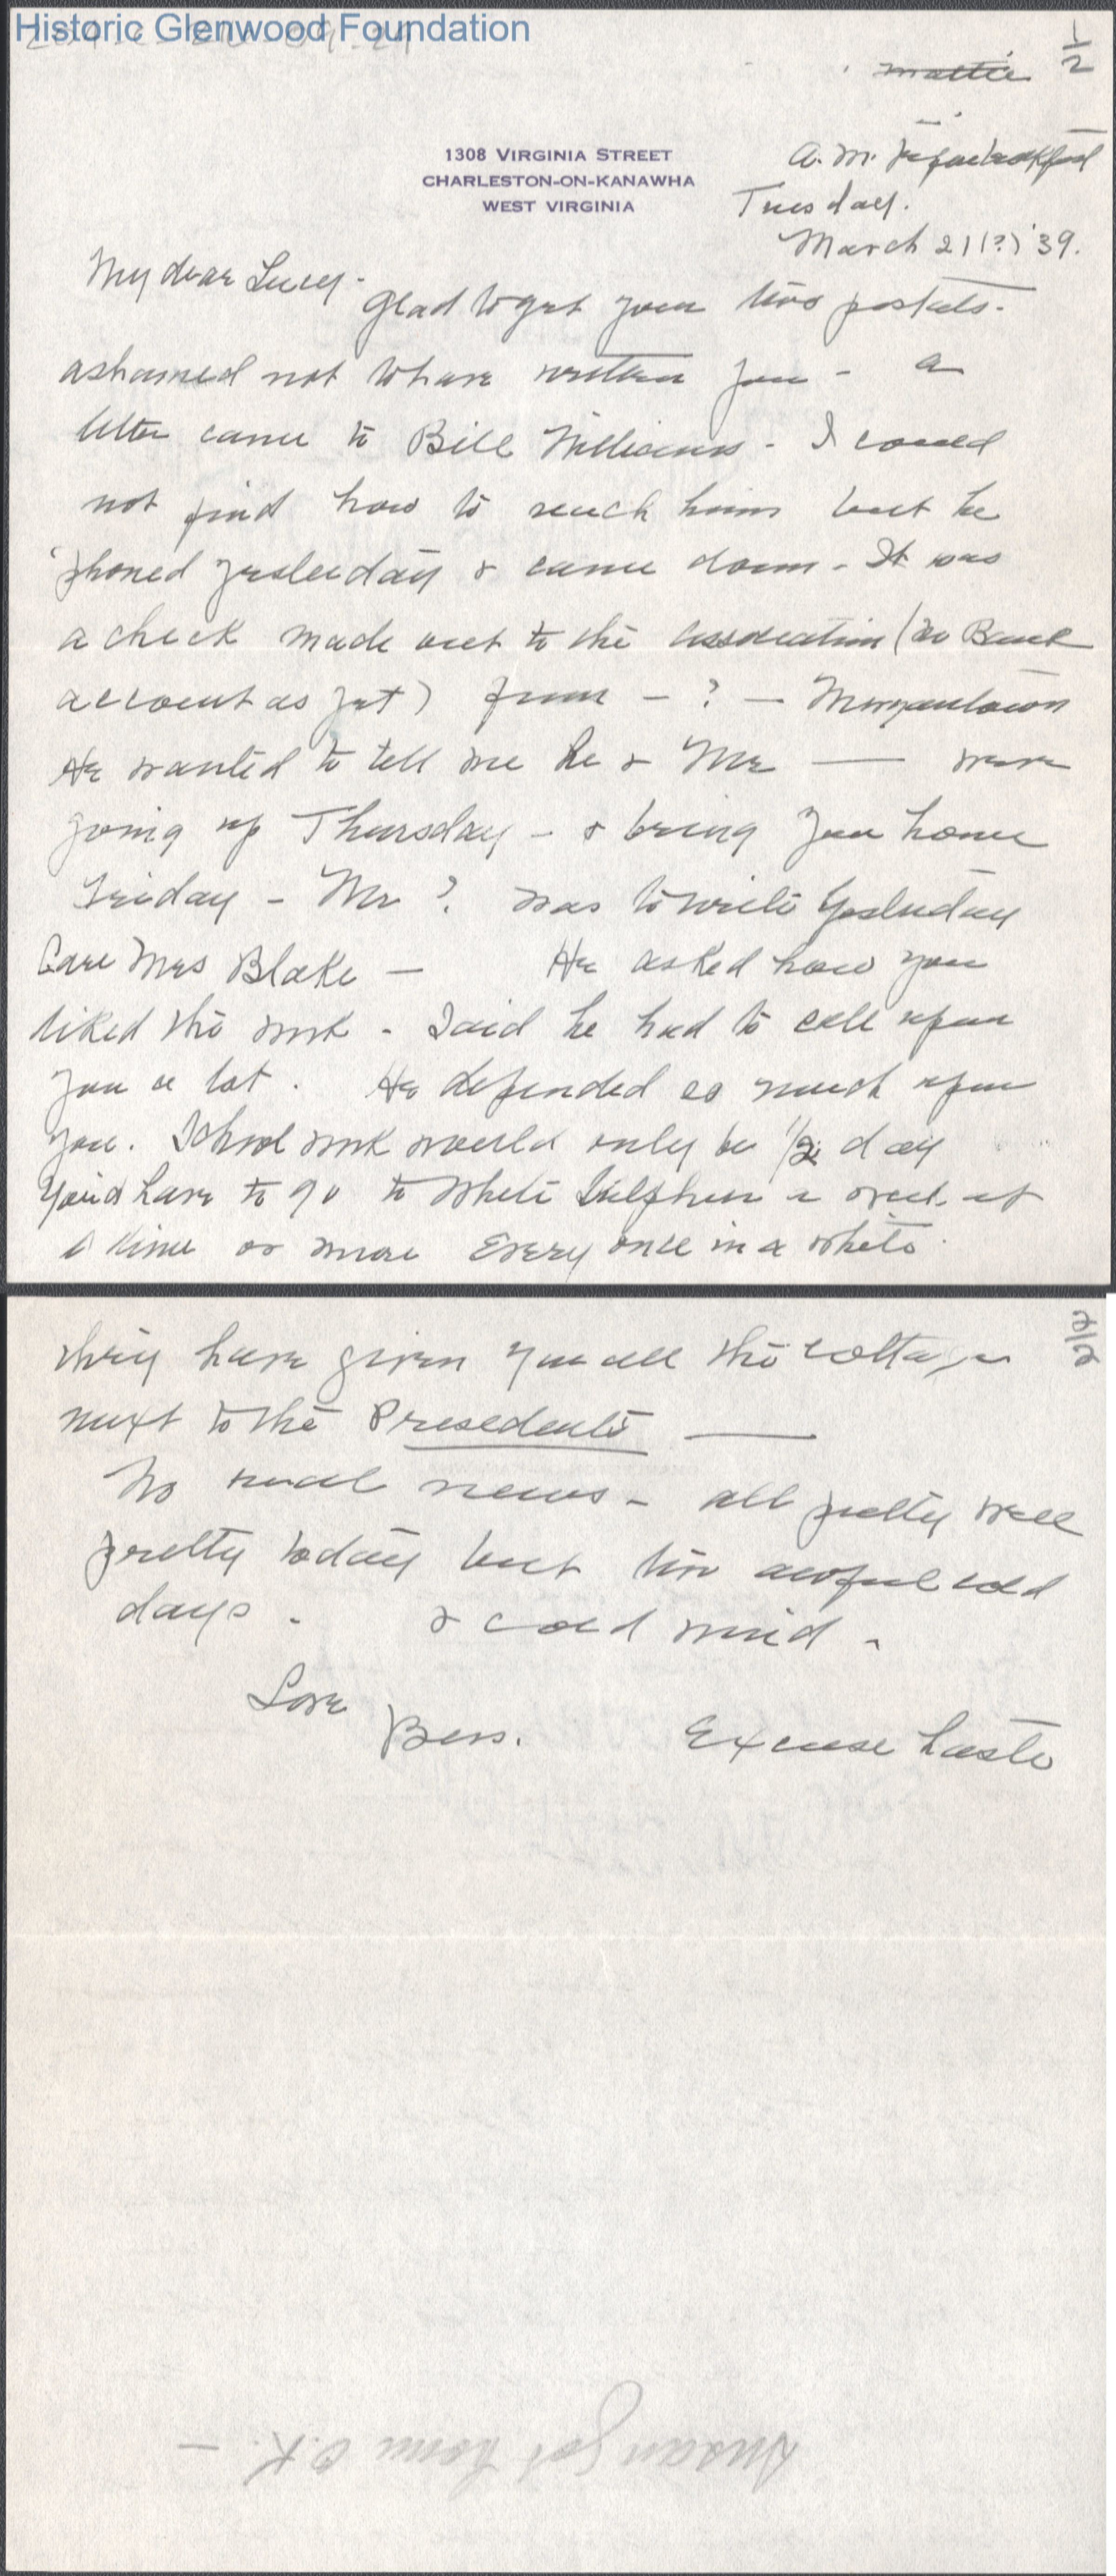 Historic Glenwood Foundation
1/2
Mattie
1308 VIRGINIA STREET
CHARLESTON-ON-KANAWHA
WEST VIRGINIA
A.M.
Tuesday.
March 21(?) '39.
My dear Lucy -
Glad to get your two postals.
ashamed not to have written you - a
letter came to Bill Williams - I could
not find how to reach him but he
'phoned yesterday & came down - It was
a check made out to the association (no Bank
account as yet) from - ? - Morgantown
He wanted to tell me he & Mr —— were
going up Thursday - & bring you home
Friday - Mr ? was to write yesterday
Care Mrs Blake —
He asked how you
liked the work - Said he had to call upon
you a lot. He depended so much upon
you. School work would only be 1/2 day
You'd have to go to White Sulphur a week at
a time or more every once in a while.
they have given you all the cottage
next to the Presedents ——
No real news - all pretty well
pretty today but two awful cold
days - & cold wind -
Love
Bess.
Excuse haste
2/2
Susan got home O.K. -